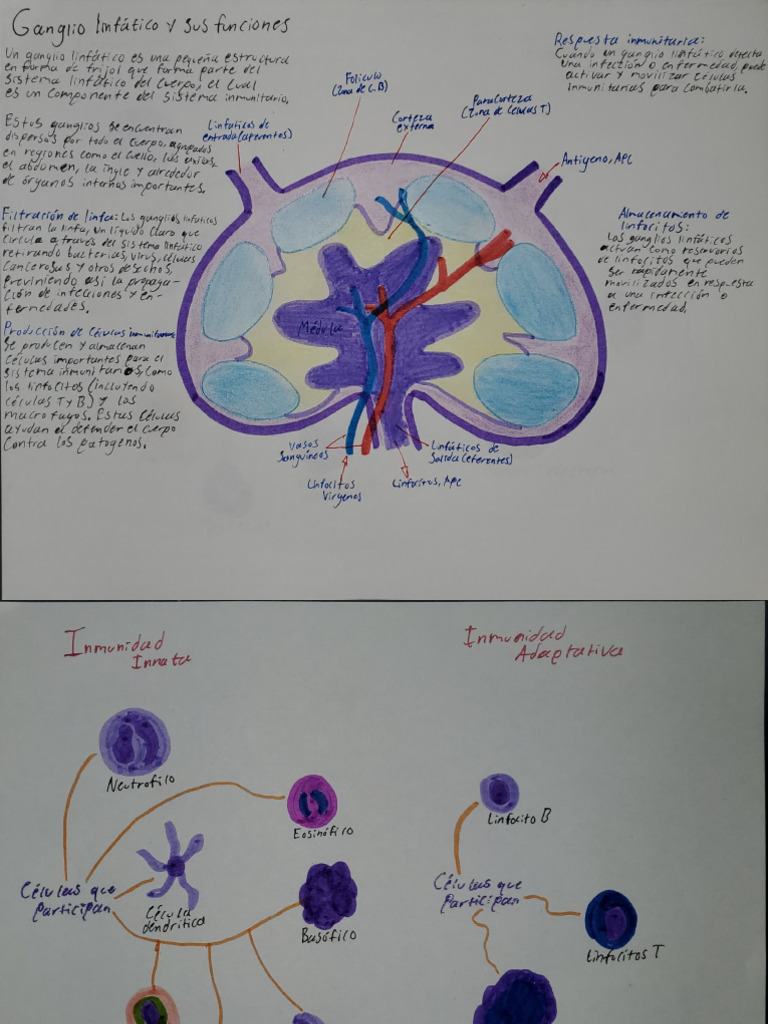 Ganglio linfático y sus funciones
Un ganglio linfático es una pequeña estructura
en forma de frijol que forma parte del
sistema linfático del cuerpo, el cual
es un componente del sistema inmunitario.
Estos ganglios se encuentran
dispersos por todo el cuerpo, agrupados
en regiones como el cuello, las axilas,
el abdomen, la ingle y alrededor
de órganos internos importantes.
Filtración de linfa: Los ganglios linfáticos
filtran la linfa, un líquido claro que
circula a través del sistema linfático
retirando bacterias, virus, células
cancerosas y otros desechos,
previniendo así la propaga-
ción de infecciones y en-
fermedades.
Producción de células inmunitarias
Se producen y almacenan
células importantes para el
sistema inmunitario, como
los linfocitos (incluyendo
células T y B) y los
macrofagos. Estas células
ayudan a defender el cuerpo
contra los patogenos.
Linfáticos de
entrada (aferentes)
Folículo
(Zona de C. B)
Corteza
externa
Paracorteza
(Zona de células T)
Respuesta inmunitaria:
Cuando un ganglio linfático detecta
una infección o enfermedad, puede
activar y movilizar células
inmunitarias para combatirla.
Antígeno, APC
Almacenamiento de
linfocitos:
Los ganglios linfáticos
actuan como reservorios
de linfocitos que pueden
ser rápidamente
movilizados en respuesta
a una infección o
enfermedad.
Médula
Vasos
Sanguíneos
Linfocitos
Vírgenes
Linfocitos, APC
Linfáticos de
Salida (eferentes)
Inmunidad
Innata
Neutrofilo
Eosinófilo
Células que
participan
Célula
dendrítica
Basófilo
Inmunidad
Adaptativa
Linfocito B
Células que
participan
Linfocitos T